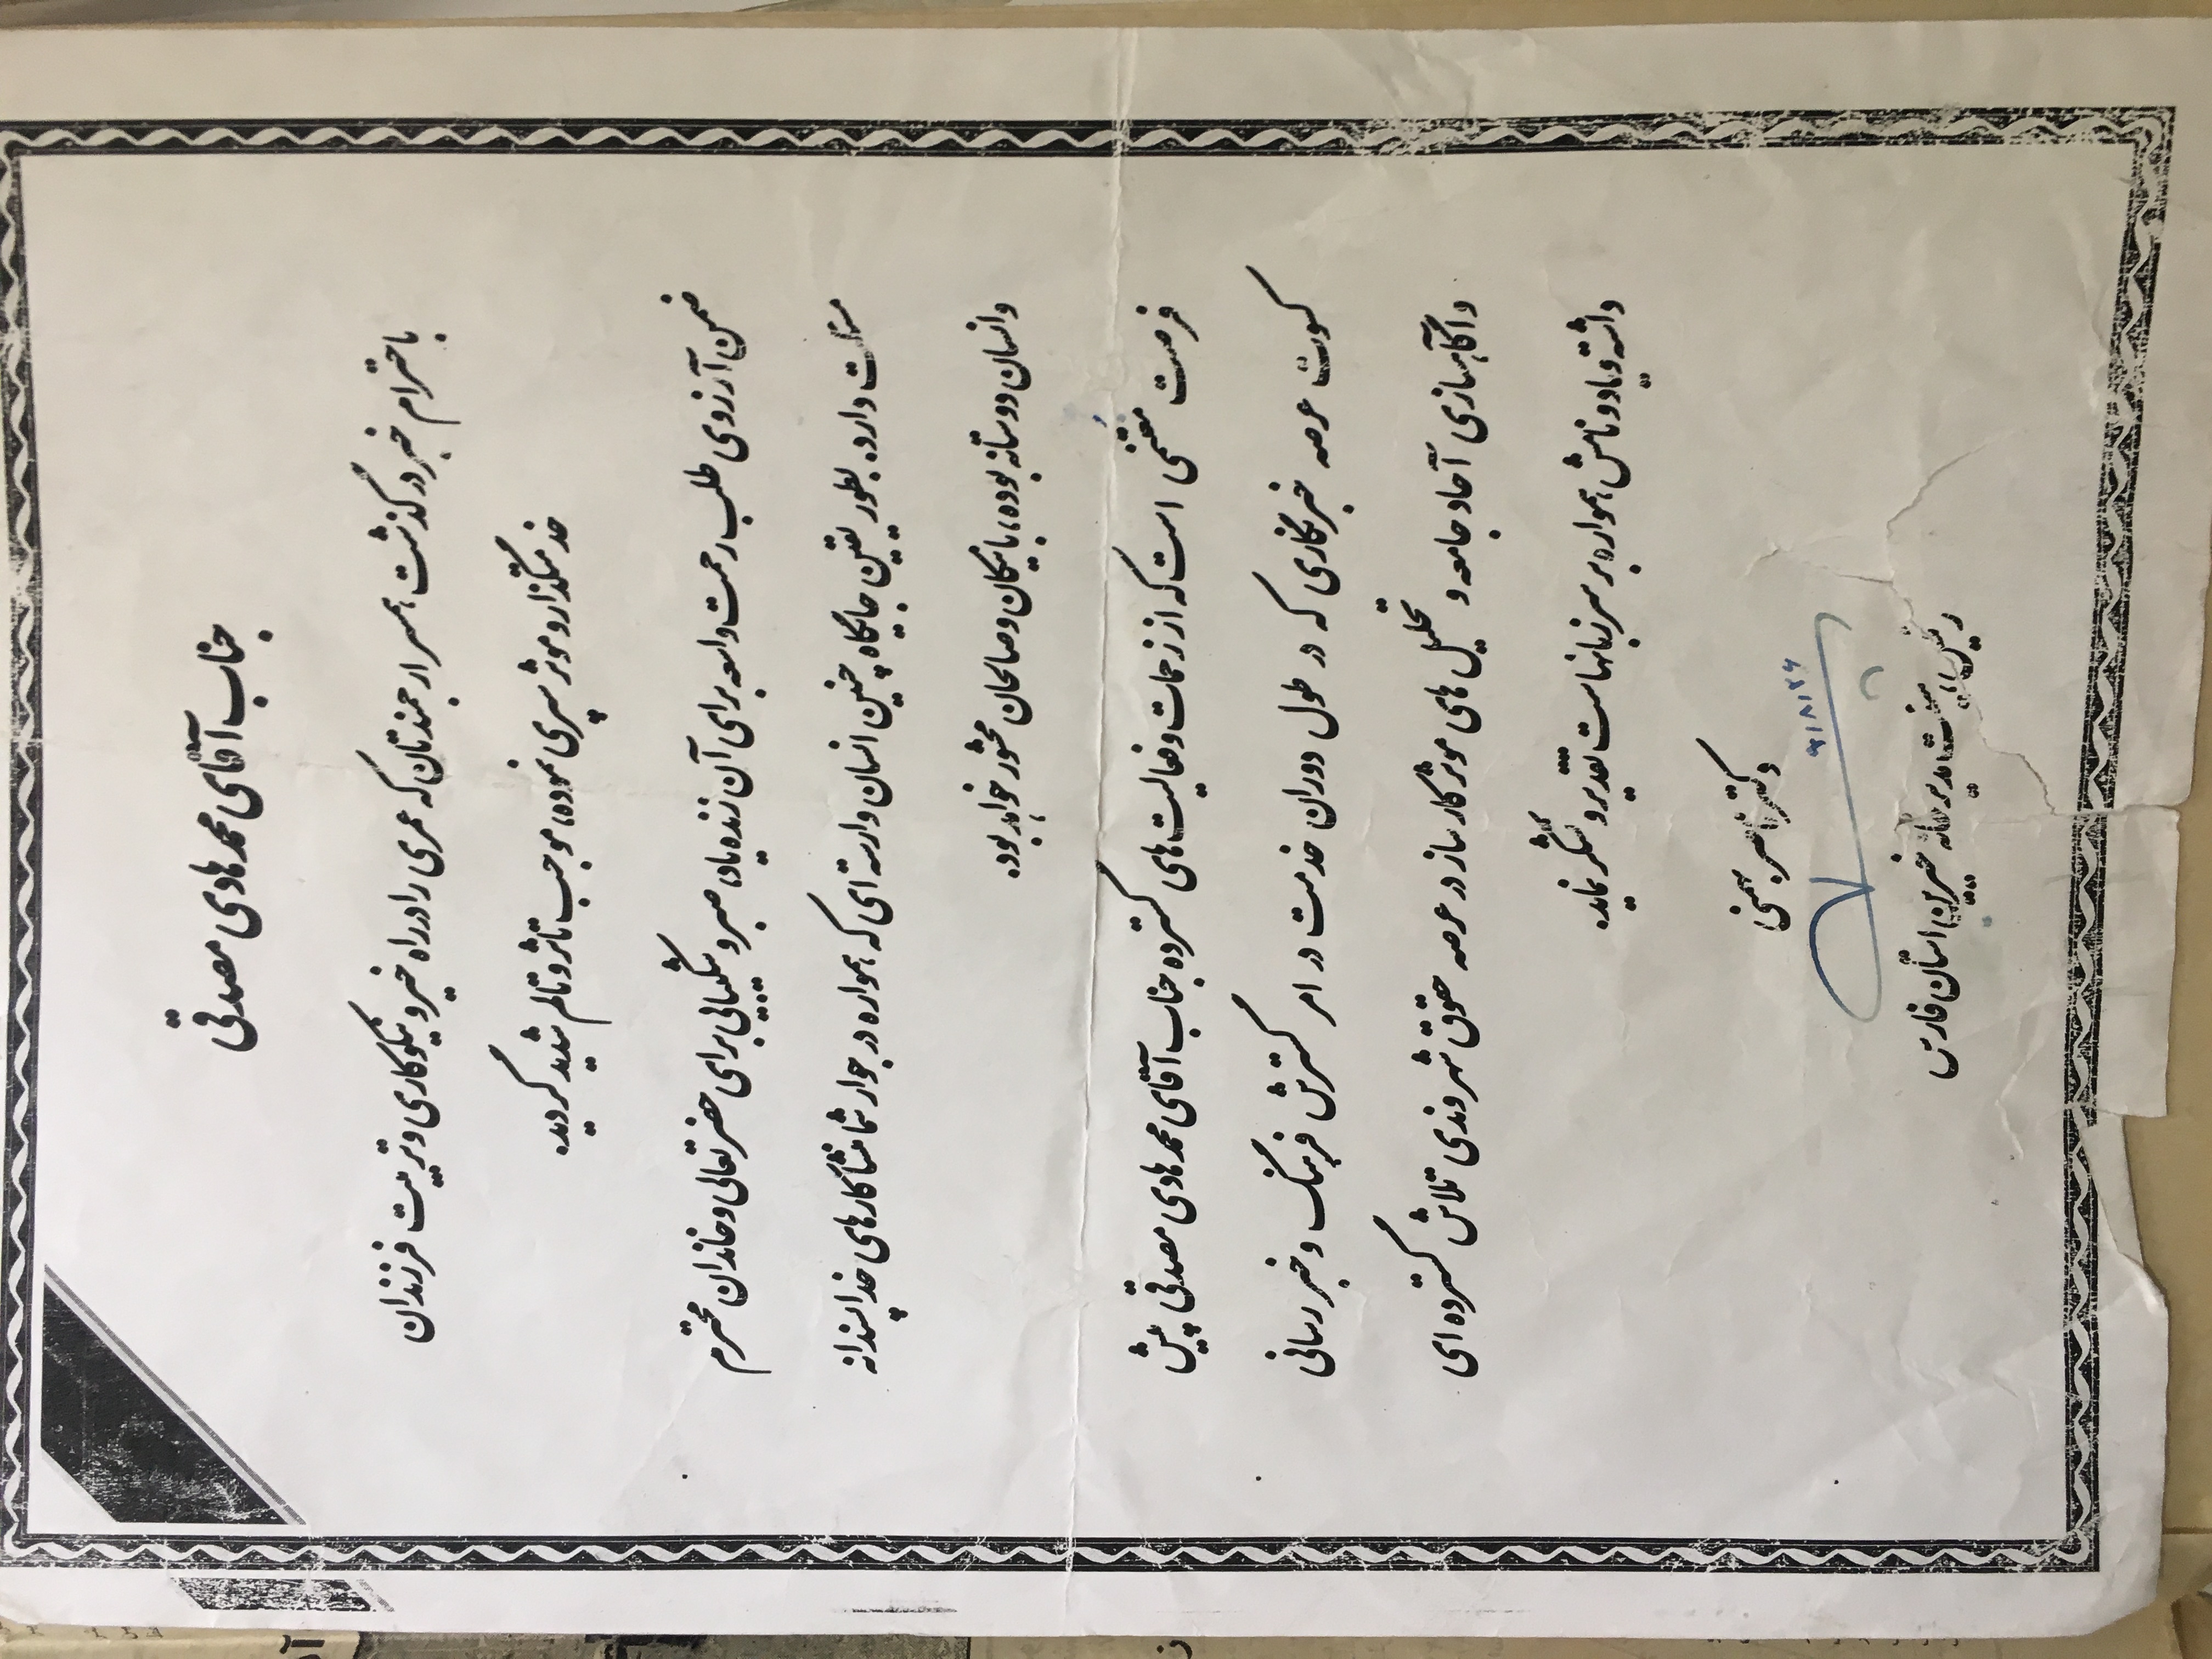 جناب آقای محمد هادی مصدقی
با احترام خبر درگذشت همسر ارجمندتان که عمری را در راه خیر و نیکوکاری و تربیت فرزندان
خدمتگذار و موثر سپری نموده، موجب تاثر و تالم شدید گردید.
ضمن آرزوی طلب رحمت واسعه برای آن زنده یاد، صبر و شکیبایی برای حضرتعالی و خاندان محترم
مسئلت دارد. بطور یقین جایگاه چنین انسان وارسته ای که همواره در جوار شما منشا کارهای خداپسندانه
و انسان دوستانه بوده، با نیکان و صالحان محشور خواهد بود.
فرصت مغتنمی است که از زحمات و فعالیت های گسترده جناب آقای محمد هادی مصدقی پیش
کسوت عرصه خبرنگاری که در طول دوران خدمت در امر گسترش فرهنگ و خبر رسانی
و آگاهسازی آحاد جامعه و تحلیل های موثر کارساز در عرصه حقوق شهروندی تلاش گسترده ای
داشته و یاد و نامش همواره بر سر زبانهاست تقدیر و تشکر نماید.
دکتر ناصر بهمنی
۹۱/۸/۲۶
خیرین استان فارس